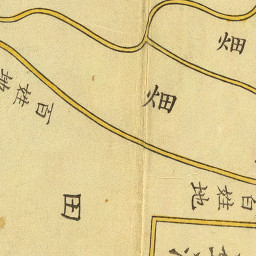 畑
畑
百姓地
百姓地
田